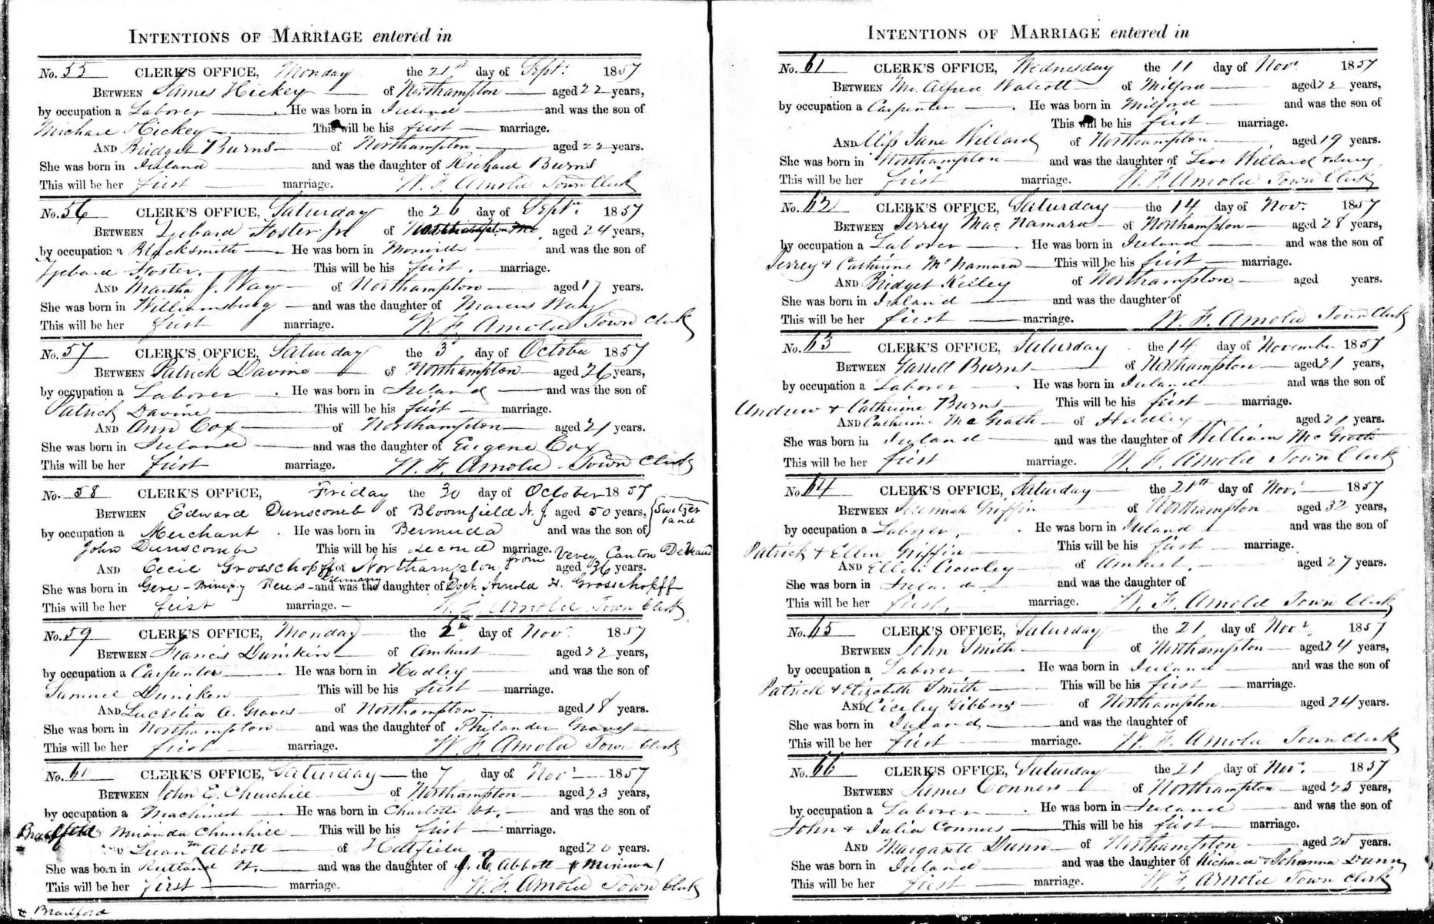 INTENTIONS OF MARRIAGE entered in
No. 55 CLERK'S OFFICE, Monday the 21st day of Sept. 1857
BETWEEN James Hickey of Northampton aged 22 years,
by occupation a Laborer. He was born in Ireland and was the son of
Michael Hickey This will be his first marriage.
AND Bridget Burns of Northampton aged 22 years.
She was born in Ireland and was the daughter of Richard Burns
This will be her first marriage. W. F. Arnold Town Clerk
No. 56 CLERK'S OFFICE, Saturday the 26 day of Sept. 1857
BETWEEN Foster Jr of aged 24 years,
by occupation a Blacksmith. He was born in and was the son of
Foster. This will be his first. marriage.
AND Martha J. Way of Northampton aged 17 years.
She was born in Williamsburg and was the daughter of Marcus Way
This will be her first marriage. W. F. Arnold Town Clerk
No. 57 CLERK'S OFFICE, Saturday the 3 day of October 1857
BETWEEN Patrick Davine of Northampton aged 26 years,
by occupation a Laborer. He was born in Ireland and was the son of
Patrick Davine This will be his first marriage.
AND Ann Cox of Northampton aged 21 years.
She was born in Ireland and was the daughter of Eugene Cox
This will be her first marriage. W. F. Arnold Town Clerk
No. 58 CLERK'S OFFICE, Friday the 30 day of October 1857
BETWEEN Edward Dunscomb of Bloomfield N.J aged 50 years, Switzerland
by occupation a Merchant. He was born in Bermuda and was the son of
John Dunscombe This will be his second marriage. from Vevey Canton De Vaud
AND Cecil Grosschopff of Northampton aged 36 years.
She was born in Gere Germany and was the daughter of Doct. Arnold H. Grosschopff
This will be her first marriage. W. F. Arnold Town Clerk
No. 59 CLERK'S OFFICE, Monday the 2d day of Nov. 1857
BETWEEN Francis Dunikin of Amherst aged 22 years,
by occupation a Carpenter. He was born in Hadley and was the son of
Samuel Duniken This will be his first marriage.
AND Lucretia A. Graves of Northampton aged 18 years.
She was born in Northampton and was the daughter of Philander Graves
This will be her first marriage. W. F. Arnold Town Clerk
No. CLERK'S OFFICE, Saturday the 7 day of Nov. 1857
BETWEEN John E. Churchill of Northampton aged 23 years,
by occupation a Machinist. He was born in Charlotte Vt. and was the son of
Bradford Miranda Churchill This will be his first marriage.
Abbott of Hatfield aged 20 years.
She was born in Rutland Vt. and was the daughter of Abbott & Minerva
This will be her first marriage. W. F. Arnold Town Clerk
& Bradford
INTENTIONS OF MARRIAGE entered in
No. 61 CLERK'S OFFICE, Wednesday the 11 day of Nov. 1857
BETWEEN Mr Alfred Walcott of Milford aged 22 years,
by occupation a Carpenter. He was born in Milford and was the son of
This will be his first marriage.
AND Miss Jane Willard of Northampton, aged 19 years.
She was born in Northampton and was the daughter of Levi Willard & Lucy
This will be her first marriage. W. F. Arnold Town Clerk
No. 62 CLERK'S OFFICE, Saturday the 14 day of Nov. 1857
BETWEEN Jerrey Mac Namara of Northampton aged 28 years,
by occupation a Laborer. He was born in Ireland and was the son of
Jerrey & Catherine McNamara This will be his first marriage.
AND Bridget Reiley of Northampton aged years.
She was born in Ireland and was the daughter of
This will be her first marriage. W. F. Arnold Town Clerk
No. 63 CLERK'S OFFICE, Saturday the 14 day of November 1857
BETWEEN Garrett Burns of Northampton aged 21 years,
by occupation a Laborer. He was born in Ireland and was the son of
Andrew & Catherine Burns This will be his first marriage.
AND Catherine McGrath of Hadley, aged 21 years.
She was born in Ireland and was the daughter of William McGrath
This will be her first marriage. W. F. Arnold Town Clerk
No. 64 CLERK'S OFFICE, Saturday the 21st day of Nov. 1857
BETWEEN Jeremiah Griffin of Northampton aged 32 years,
by occupation a Laborer. He was born in Ireland and was the son of
Patrick & Ellen Griffin This will be his first marriage.
AND Ellen Crowley of Amherst, aged 27 years.
She was born in Ireland and was the daughter of
This will be her first. marriage. W. F. Arnold Town Clerk
No. 65 CLERK'S OFFICE, Saturday the 21 day of Nov. 1857
BETWEEN John Smith of Northampton aged 24 years,
by occupation a Laborer. He was born in Ireland and was the son of
Patrick & Elizabeth Smith This will be his first marriage.
AND Ciciley Gibbons of Northampton aged 24 years.
She was born in Ireland, and was the daughter of
This will be her first marriage. W. F. Arnold Town Clerk
No. 66 CLERK'S OFFICE, Saturday the 21 day of Nov. 1857
BETWEEN James Conners of Northampton aged 25 years,
by occupation a Laborer. He was born in Ireland and was the son of
John & Julia Conners This will be his first marriage.
AND Margarete Dunn of Northampton aged 25 years.
She was born in Ireland and was the daughter of Richard & Johanna Dunn
This will be her first marriage. W. F. Arnold Town Clerk